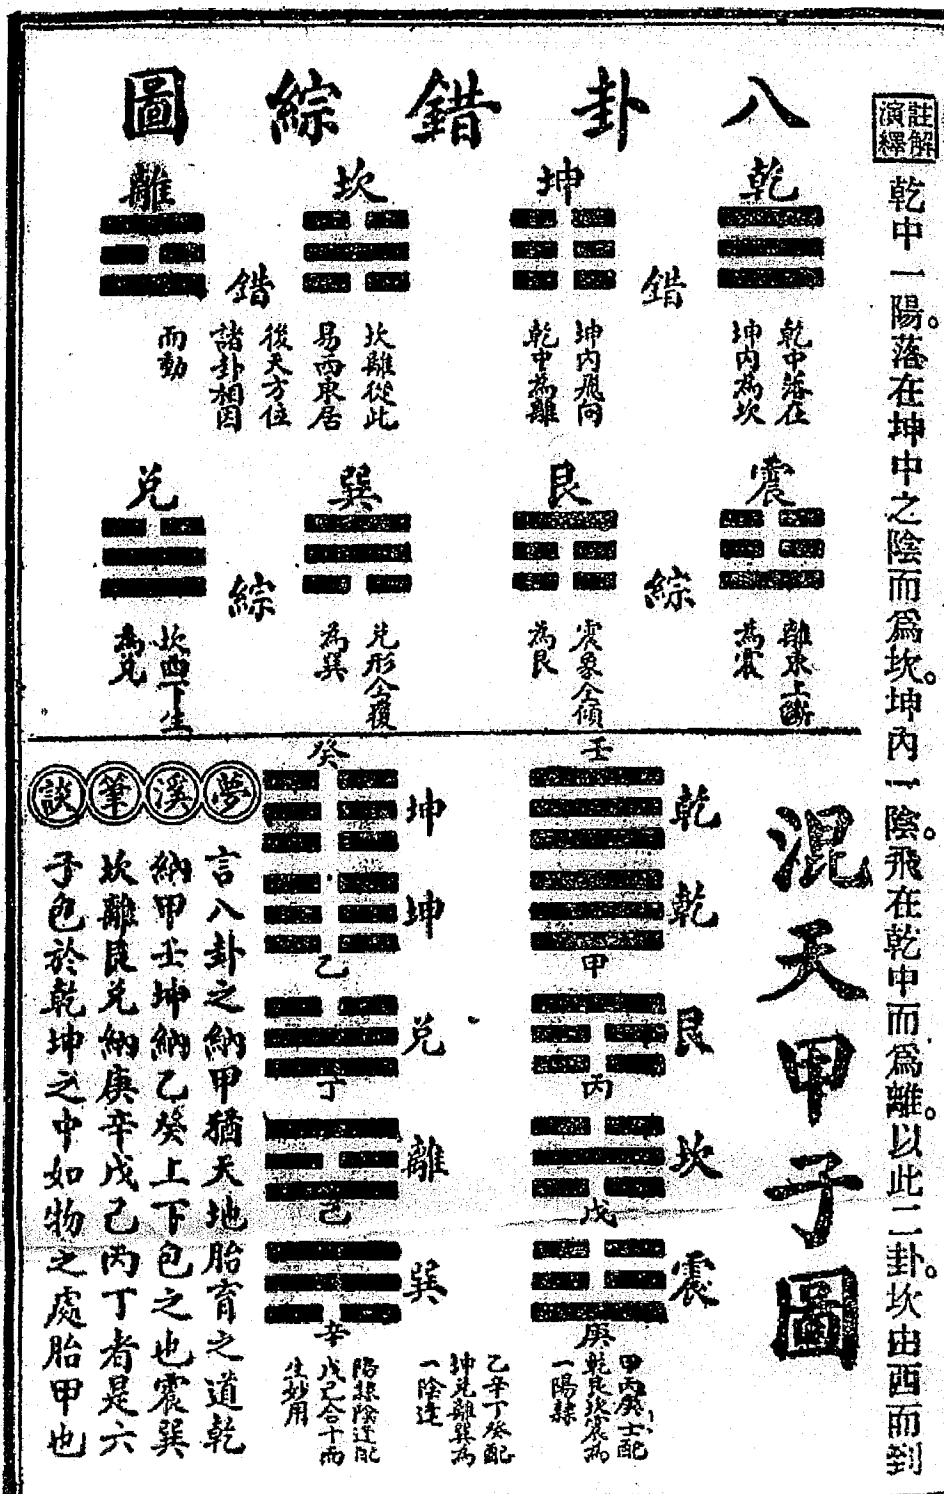 註解演繹
乾中一陽。落在坤中之陰而爲坎。坤內一陰。飛在乾中而爲離。以此二卦。坎由西而到
八卦錯綜圖
乾
坤
錯
坎
離
錯
乾中落在
坤內為坎
坤內飛向
乾中為離
坎離從此
易西東居
後天方位
諸卦相因
而動
震
艮
綜
巽
兌
綜
離東上斷
為震
震象全傾
為艮
兌形全覆
為巽
坎西下生
為兌
混天甲子圖
壬
乾
乾
甲
艮
丙
坎
戊
震
庚
甲丙戊壬配
乾艮坎震為
一陽隸
癸
坤
坤
乙
兌
丁
離
己
巽
辛
乙辛丁癸配
坤兌離巽為
一陰逢
陽隸陰逢配
戊己合十而
生妙用
夢溪筆談
言八卦之納甲猶天地胎育之道乾
納甲壬坤納乙癸上下包之也震巽
坎離艮兌納庚辛戊己丙丁者是六
子包於乾坤之中如物之處胎甲也